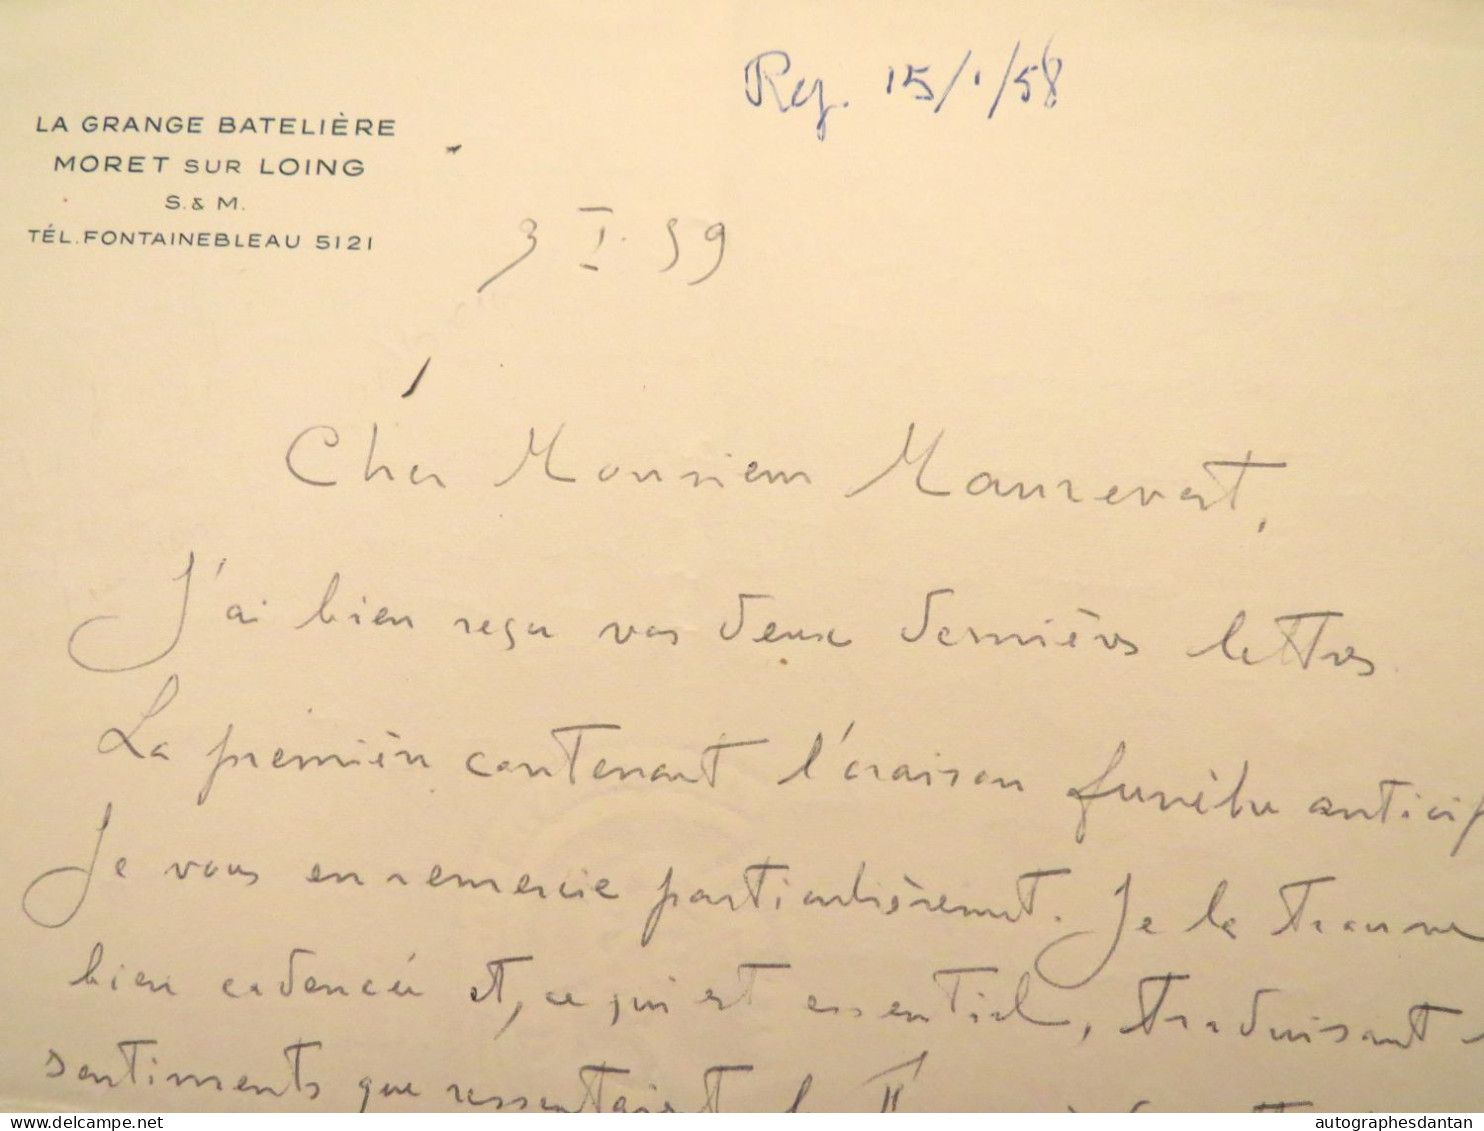 Rep. 15/1/58
LA GRANGE BATELIÈRE
MORET SUR LOING
S. & M.
TÉL. FONTAINEBLEAU 5121
3 I. 59
Cher Monsieur Maurevert,
J'ai bien reçu vos deux dernières lettres
La première contenant l'oraison funèbre anticip
Je vous en remercie particulièrement. Je la trouve
bien cadencée et, ce qui est essentiel, traduisant
sentiments que ressentaient
autographesdantan